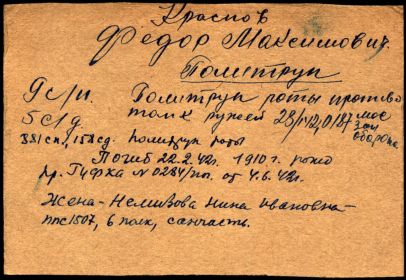 Краснов
Федор Максимович.
Политрук
9с/п. Политрук роты противо
5с/д. танк ружей 28/IV42, 0187 мос
зон
обороны
881сп, 158сд. политрук роты
Погиб 22.2.42г. 1910 г. рожд
пр. ГУФКА № 0284/пог. от 4.6.42г.
Жена - Немызова Нина Ивановна -
ппс 1507, 6 полк, санчасть.